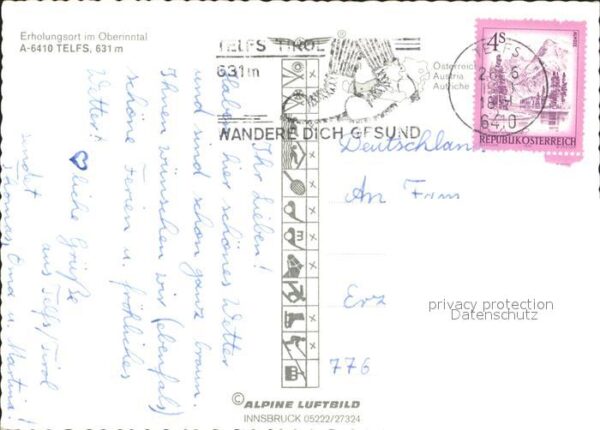 Erholungsort im Oberinntal
A-6410 TELFS, 631 m
TELFS TIROL
631m
WANDERE DICH GESUND
Österreich
Austria
Autriche
4s
TELFS
6410
REPUBLIK ÖSTERREICH
Ihr Lieben!
Haben hier schönes Wetter
und sind schon ganz braun.
Ihnen wünschen wir (ebenfalls)
schöne Ferien u. fröhliches
Wetter!
♥liche Grüße
aus Telfs/Tirol
sendet
Thomas, Oma u. Martina!
Deutschland
An Fam
Erz
776
privacy protection
Datenschutz
© ALPINE LUFTBILD
INNSBRUCK 05222/27324